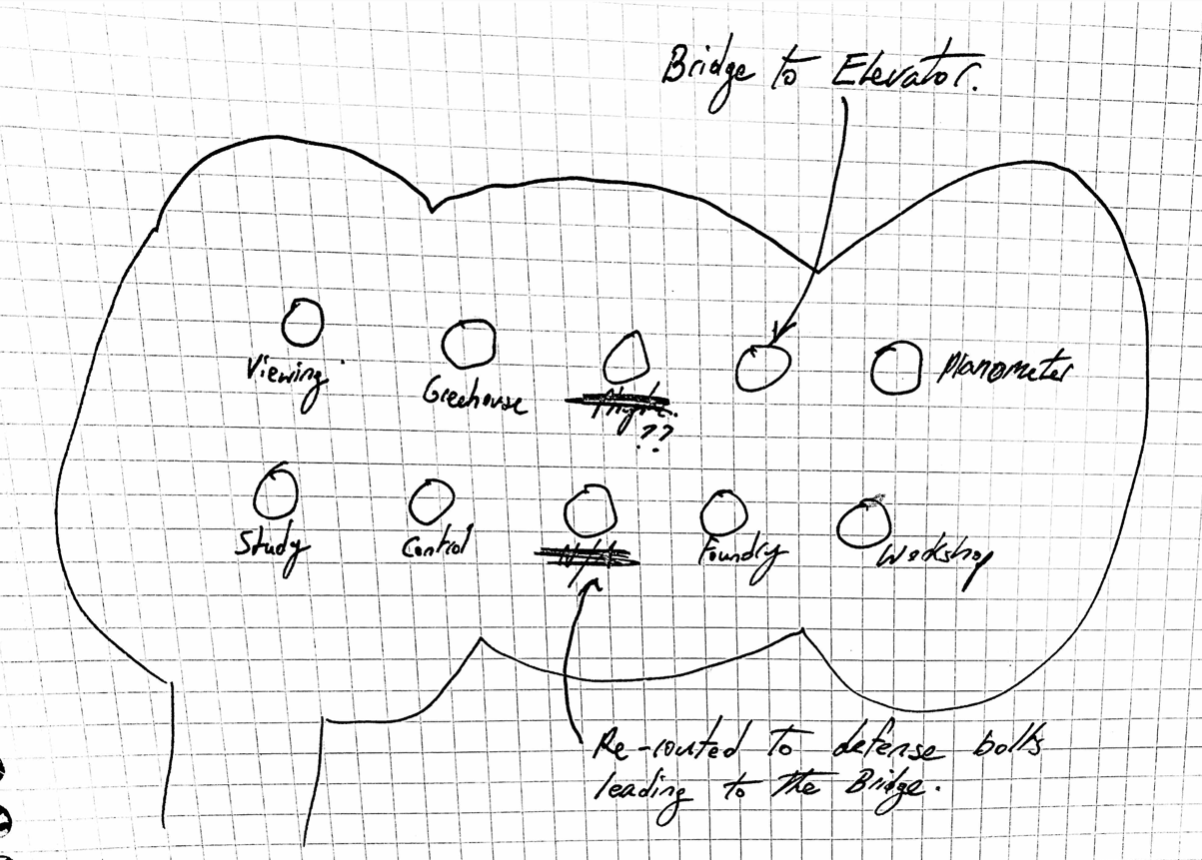 Bridge to Elevator.
Viewing
Greehouse
??
Planometer
Study
Control
N/A
Foundry
Workshop
Re-routed to defense bolts
leading to the Bridge.